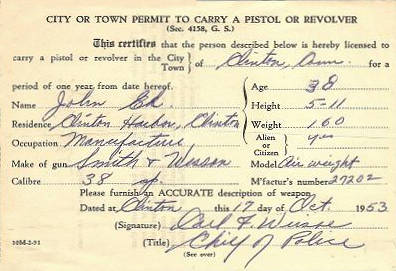 CITY OR TOWN PERMIT TO CARRY A PISTOL OR REVOLVER
(Sec. 4158, G. S.)
This certifies that the person described below is hereby licensed to
carry a pistol or revolver in the City Town } of Clinton, Conn. for a
period of one year from date hereof.
Name John
Residence Clinton Harbor, Clinton
Occupation Manufacture
Make of gun Smith & Wesson
Calibre 38
Age 38
Height 5-11
Weight 160
Alien or Citizen } yes
Model Air weight
M'factur's number 27202
Please furnish an ACCURATE description of weapon.
Dated at Clinton this 17 day of Oct. 1953
(Signature) Carl F.
(Title) Chief of Police
(See over)